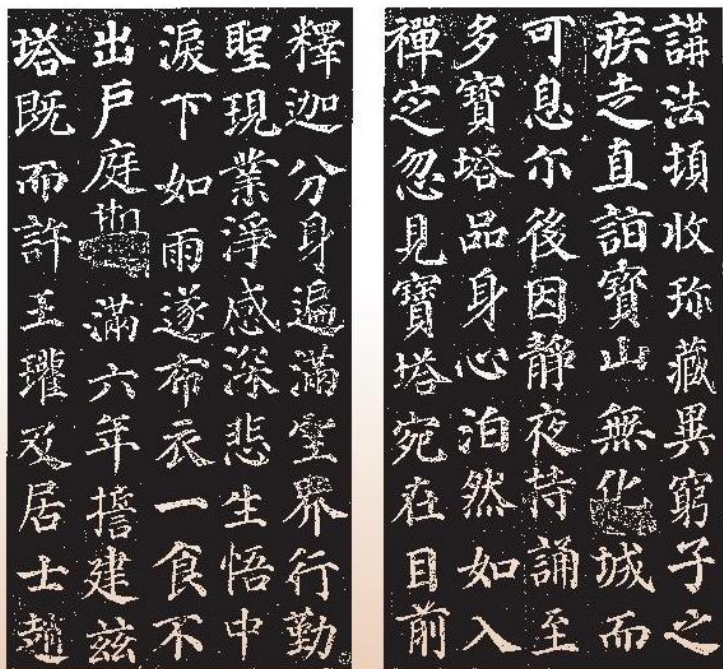 講法頓收珎藏異窮子之
疾走直詣寶山無化城而
可息尔後因靜夜持誦至
多寶塔品身心泊然如入
禪定忽見寶塔宛在目前
釋迦分身遍滿空界行勤
聖現業淨感深悲生悟中
淚下如雨遂布衣一食不
出戶庭滿六年誓建茲
塔既而許王瓘及居士趙